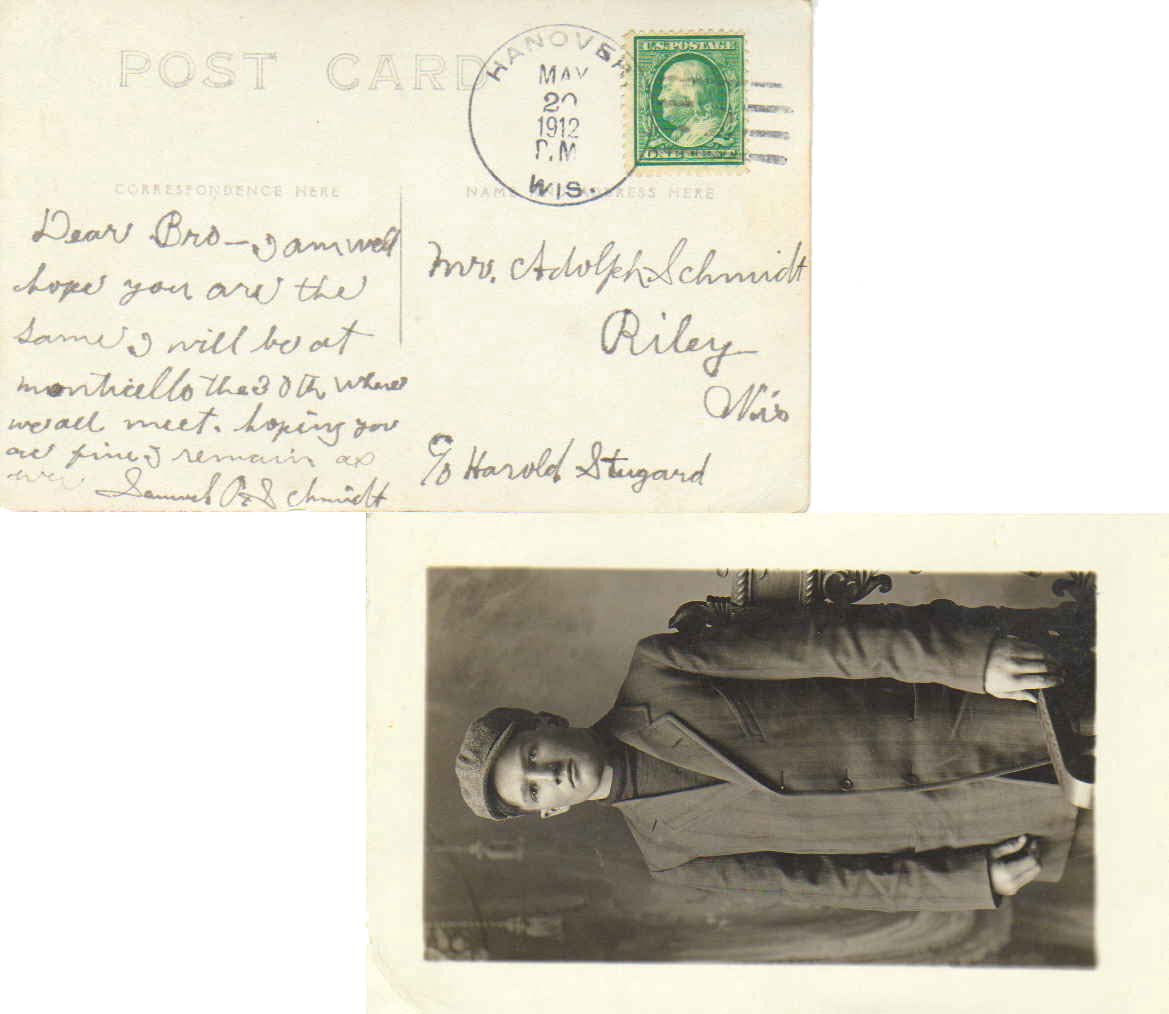 POST CARD
HANOVER
MAY
20
1912
P.M
WIS.
U.S. POSTAGE
ONE CENT
CORRESPONDENCE HERE
NAME AND ADDRESS HERE
Dear Bro – I am well
hope you are the
same I will be at
monticello the 30th where
we all meet. hoping you
are fine I remain as
ever Samuel Schmidt
Mr. Adolph Schmidt
Riley
Wis
c/o Harold Stugard